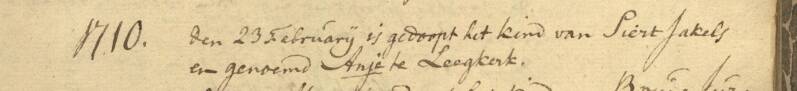 1710. den 23 Februarij is gedoopt het kind van Siert Jakels
en genoemd Anje te Leegkerk.